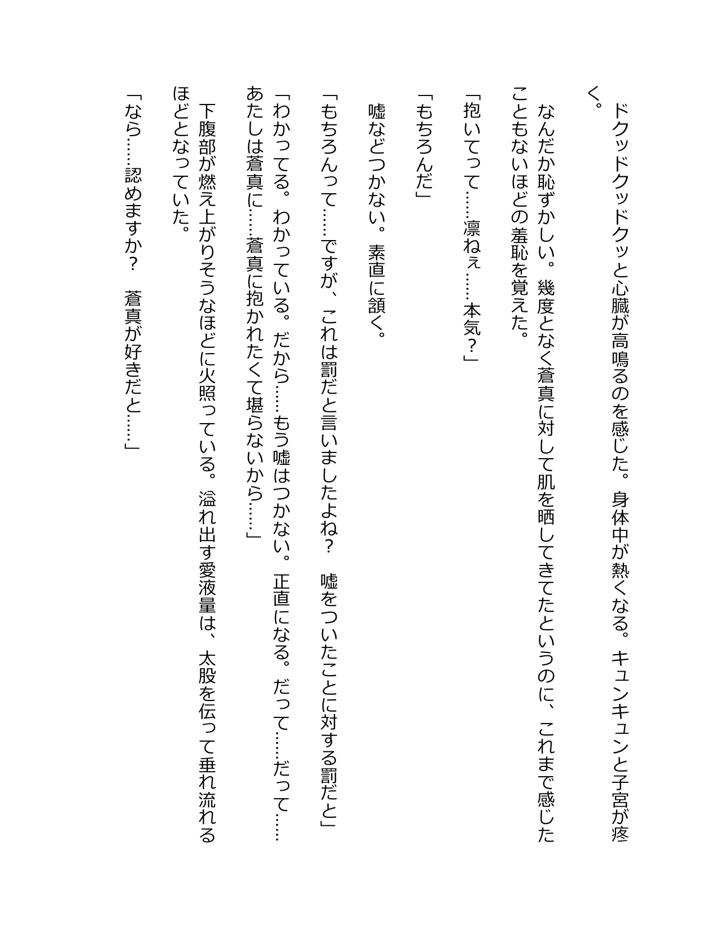 ドクッドクッドクッと心臓が高鳴るのを感じた。身体中が熱くなる。キュンキュンと子宮が疼
く。
なんだか恥ずかしい。幾度となく蒼真に対して肌を晒してきてたというのに、これまで感じた
こともないほどの羞恥を覚えた。
「抱いてって……凛ねぇ……本気？」
「もちろんだ」
嘘などつかない。素直に頷く。
「もちろんって……ですが、これは罰だと言いましたよね？　嘘をついたことに対する罰だと」
「わかってる。わかっている。だから……もう嘘はつかない。正直になる。だって……だって……
あたしは蒼真に……蒼真に抱かれたくて堪らないから……」
下腹部が燃え上がりそうなほどに火照っている。溢れ出す愛液量は、太股を伝って垂れ流れる
ほどとなっていた。
「なら……認めますか？　蒼真が好きだと……」